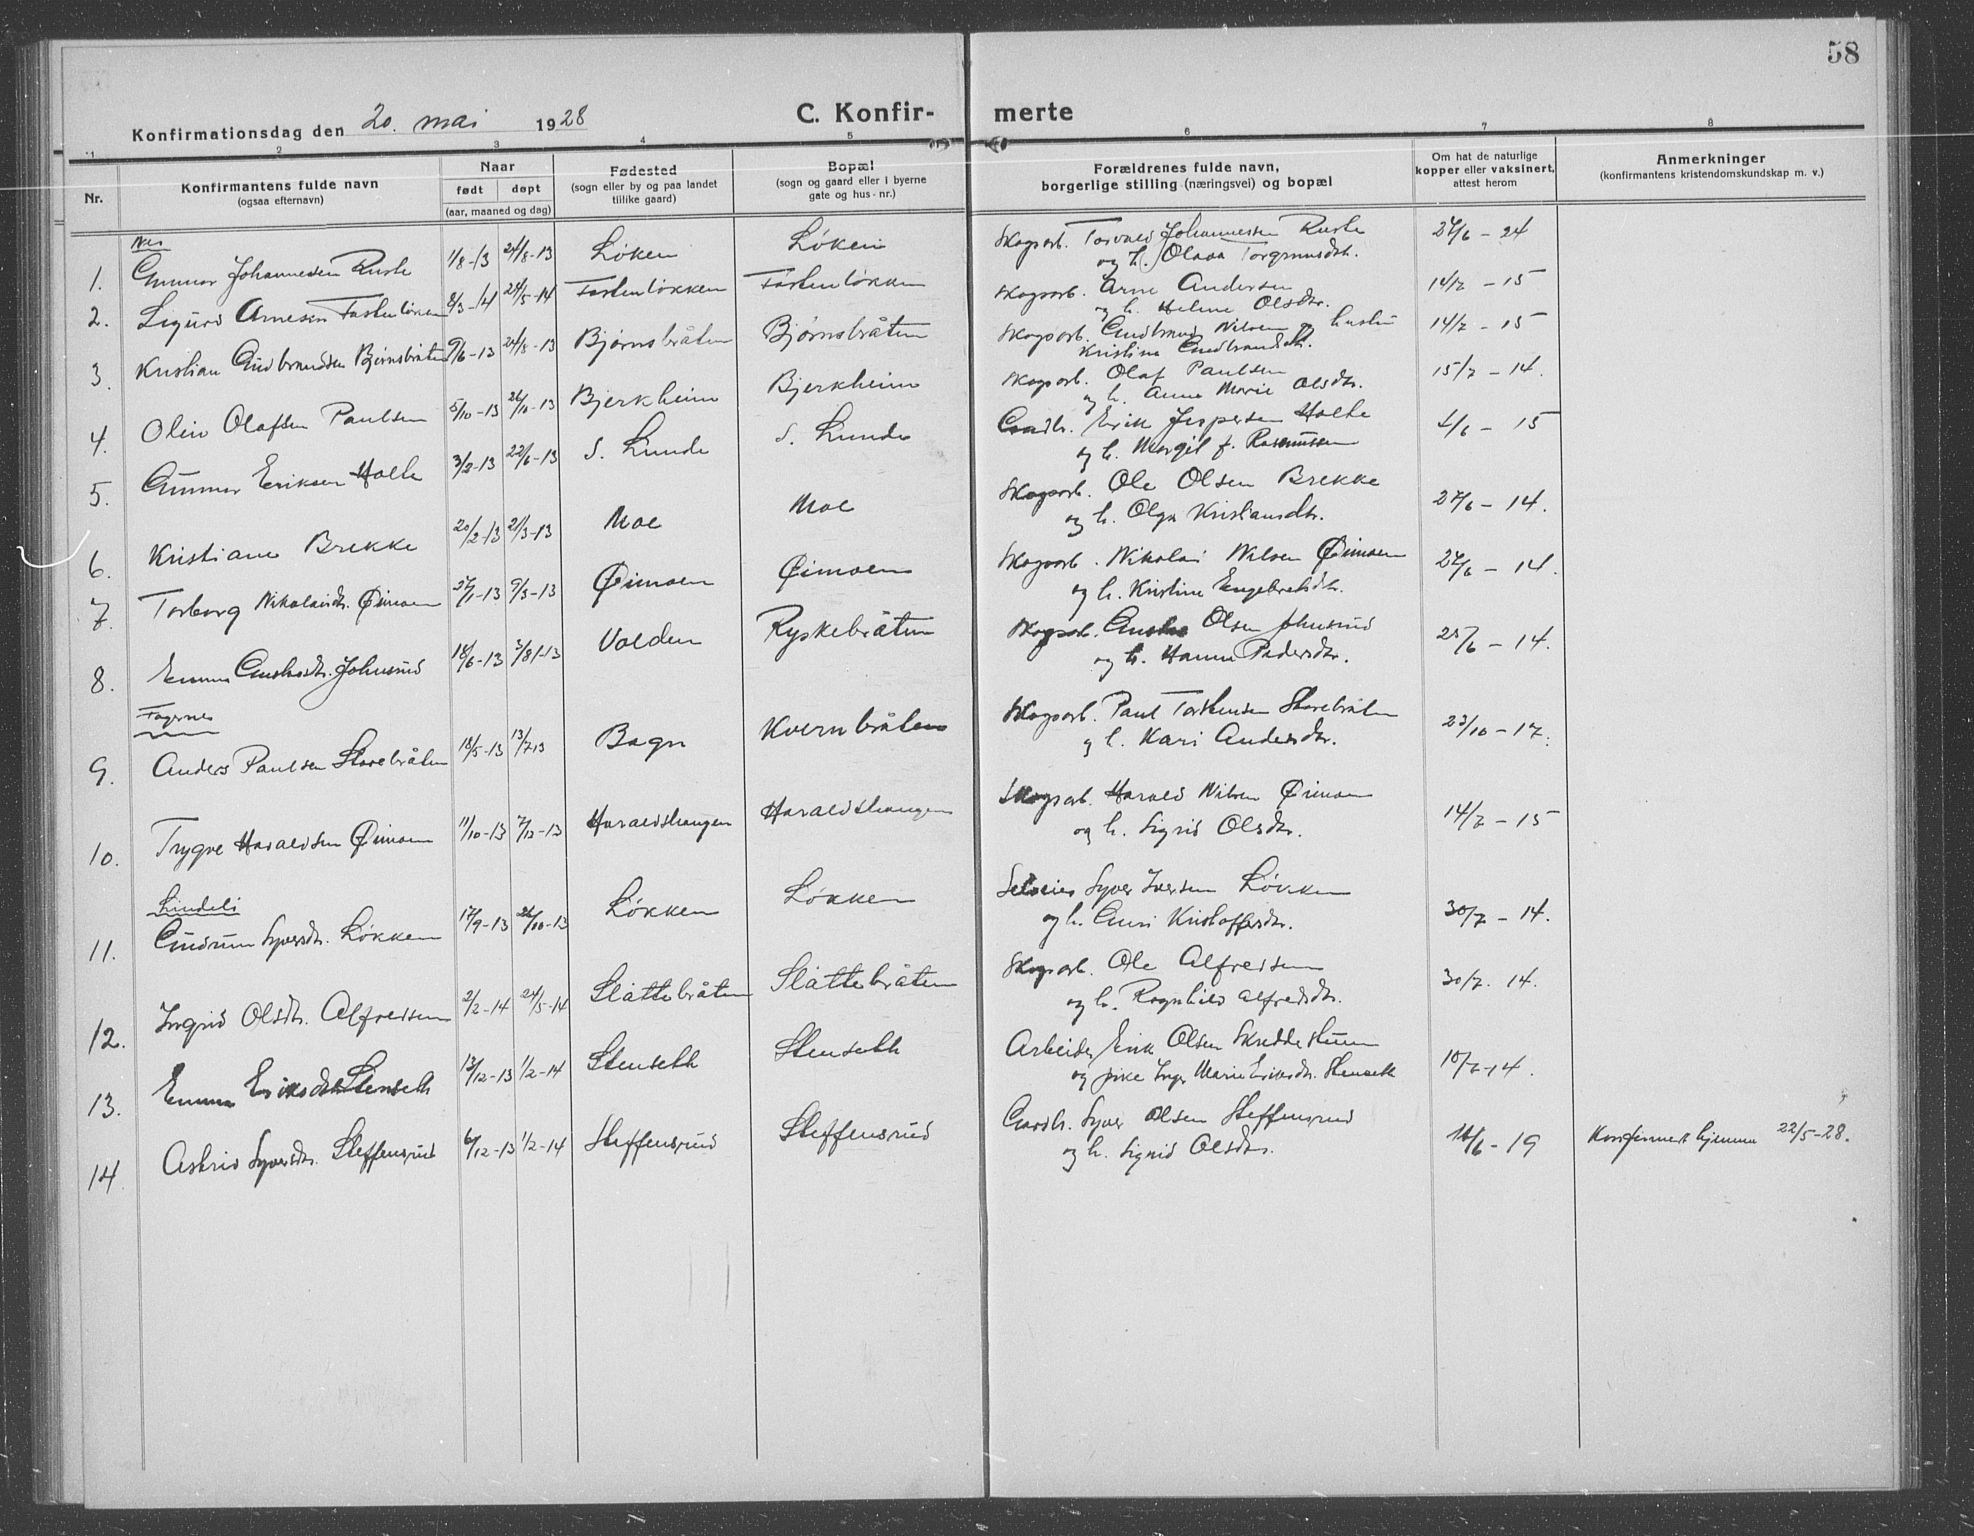 58
Konfirmationsdag den 20. mai 1928
C. Konfir- merte
1 2 3 4 5 6 7 8
Nr.
Konfirmantens fulde navn
(ogsaa efternavn)
Naar
født døpt
(aar, maaned og dag)
Fødested
(sogn eller by og paa landet
tillike gaard)
Bopæl
(sogn og gaard eller i byerne
gate og hus-nr.)
Forældrenes fulde navn,
borgerlige stilling (næringsvei) og bopæl
Om hat de naturlige
kopper eller vaksinert,
attest herom
Anmerkninger
(konfirmantens kristendomskundskap m. v.)
Nes
1. Gunnar Johannessen Ruste 1/8-13 24/8-13 Løken Løken Skogsarb. Torvald Johannessen Ruste 27/6 - 24
og h. Olava Torgrimsdtr.
2. Sigurd Arnesen Fostenløken 8/3-14 24/5-14 Fostenløkken Fostenløkken Skogsarb. Arne Andersen 14/7 - 15
og h. Helene Olsdtr.
3. Kristian Gudbrandsen Bjørnsbråten 9/6-13 24/8-13 Bjørnsbråten Bjørnsbråten Skogsarb. Gudbrand Nilsen og hustru 14/7 - 15
Kristine Gudbrandsdtr.
4. Olin Olafsen Paulsen 5/10-13 26/10-13 Bjerkheim Bjerkheim Skogsarb. Olaf Paulsen 15/7 - 14.
og h. Anne Marie Olsdtr.
5. Gunnar Eriksen Holte 3/2-13 22/6-13 S. Lunde S. Lunde Gardbr. Erik Jespersen Holte 4/6 - 15
og h. Margit f. Rasmussen
6. Kristiane Brekke 20/2-13 21/3-13 Moe Moe Skogsarb. Ole Olsen Brekke 27/6 - 14.
og h. Olga Kristiansdtr.
7. Torborg Nikolaisdtr. Øimoen 27/1-13 9/3-13 Øimoen Øimoen Skogsarb. Nikolai Nilsen Øimoen 27/6 - 14.
og h. Kristine Engebretsdtr.
8. Emma Johnsrud 18/6-13 3/8-13 Volden Ryskebråten Skogsarb. Olsen Johnsrud 25/6 - 14.
og h. Hanna Pedersdtr.
Fagernes
9. Anders Paulsen Storebråten 18/5-13 13/7 13 Bagn Kvernbråten Skogsarb. Paul Torstensen Storebråten 23/10 - 17.
og h. Kari Andersdtr.
10. Trygve Haraldsen Øimoen 11/10-13 7/12-13 Haraldshaugen Haraldshaugen Skogsarb. Harald Nilsen Øimoen 14/7 - 15
og h. Sigrid Olsdtr.
Lindeli
11. Gudrun Syversdtr. Løkken 17/9-13 26/10-13 Løkken Løkken Selveier Syver Iversen Løkken 30/7 - 14.
og h. Guri Kristoffersdtr.
12. Ingrid Olsdtr. Alfredsen 2/2-14 24/5-14 Slåttebråten Slåttebråten Skogsarb. Ole Alfredsen 30/7. 14.
og h. Ragnhild Alfredsdtr.
13. Emma Eriksdtr. Stenseth 13/12-13 1/2-14 Stenseth Stenseth Arbeider Erik Olsen Skreddestuen 10/7-14.
og pike Inga Marie Eriksdtr. Stenseth
14. Astrid Syversdtr. Steffensrud 6/12-13 1/2-14 Steffensrud Steffensrud Gardbr. Syver Olsen Steffensrud 14/6 - 19 Konfirmert hjemme 22/5-28.
og h. Sigrid Olsdtr.